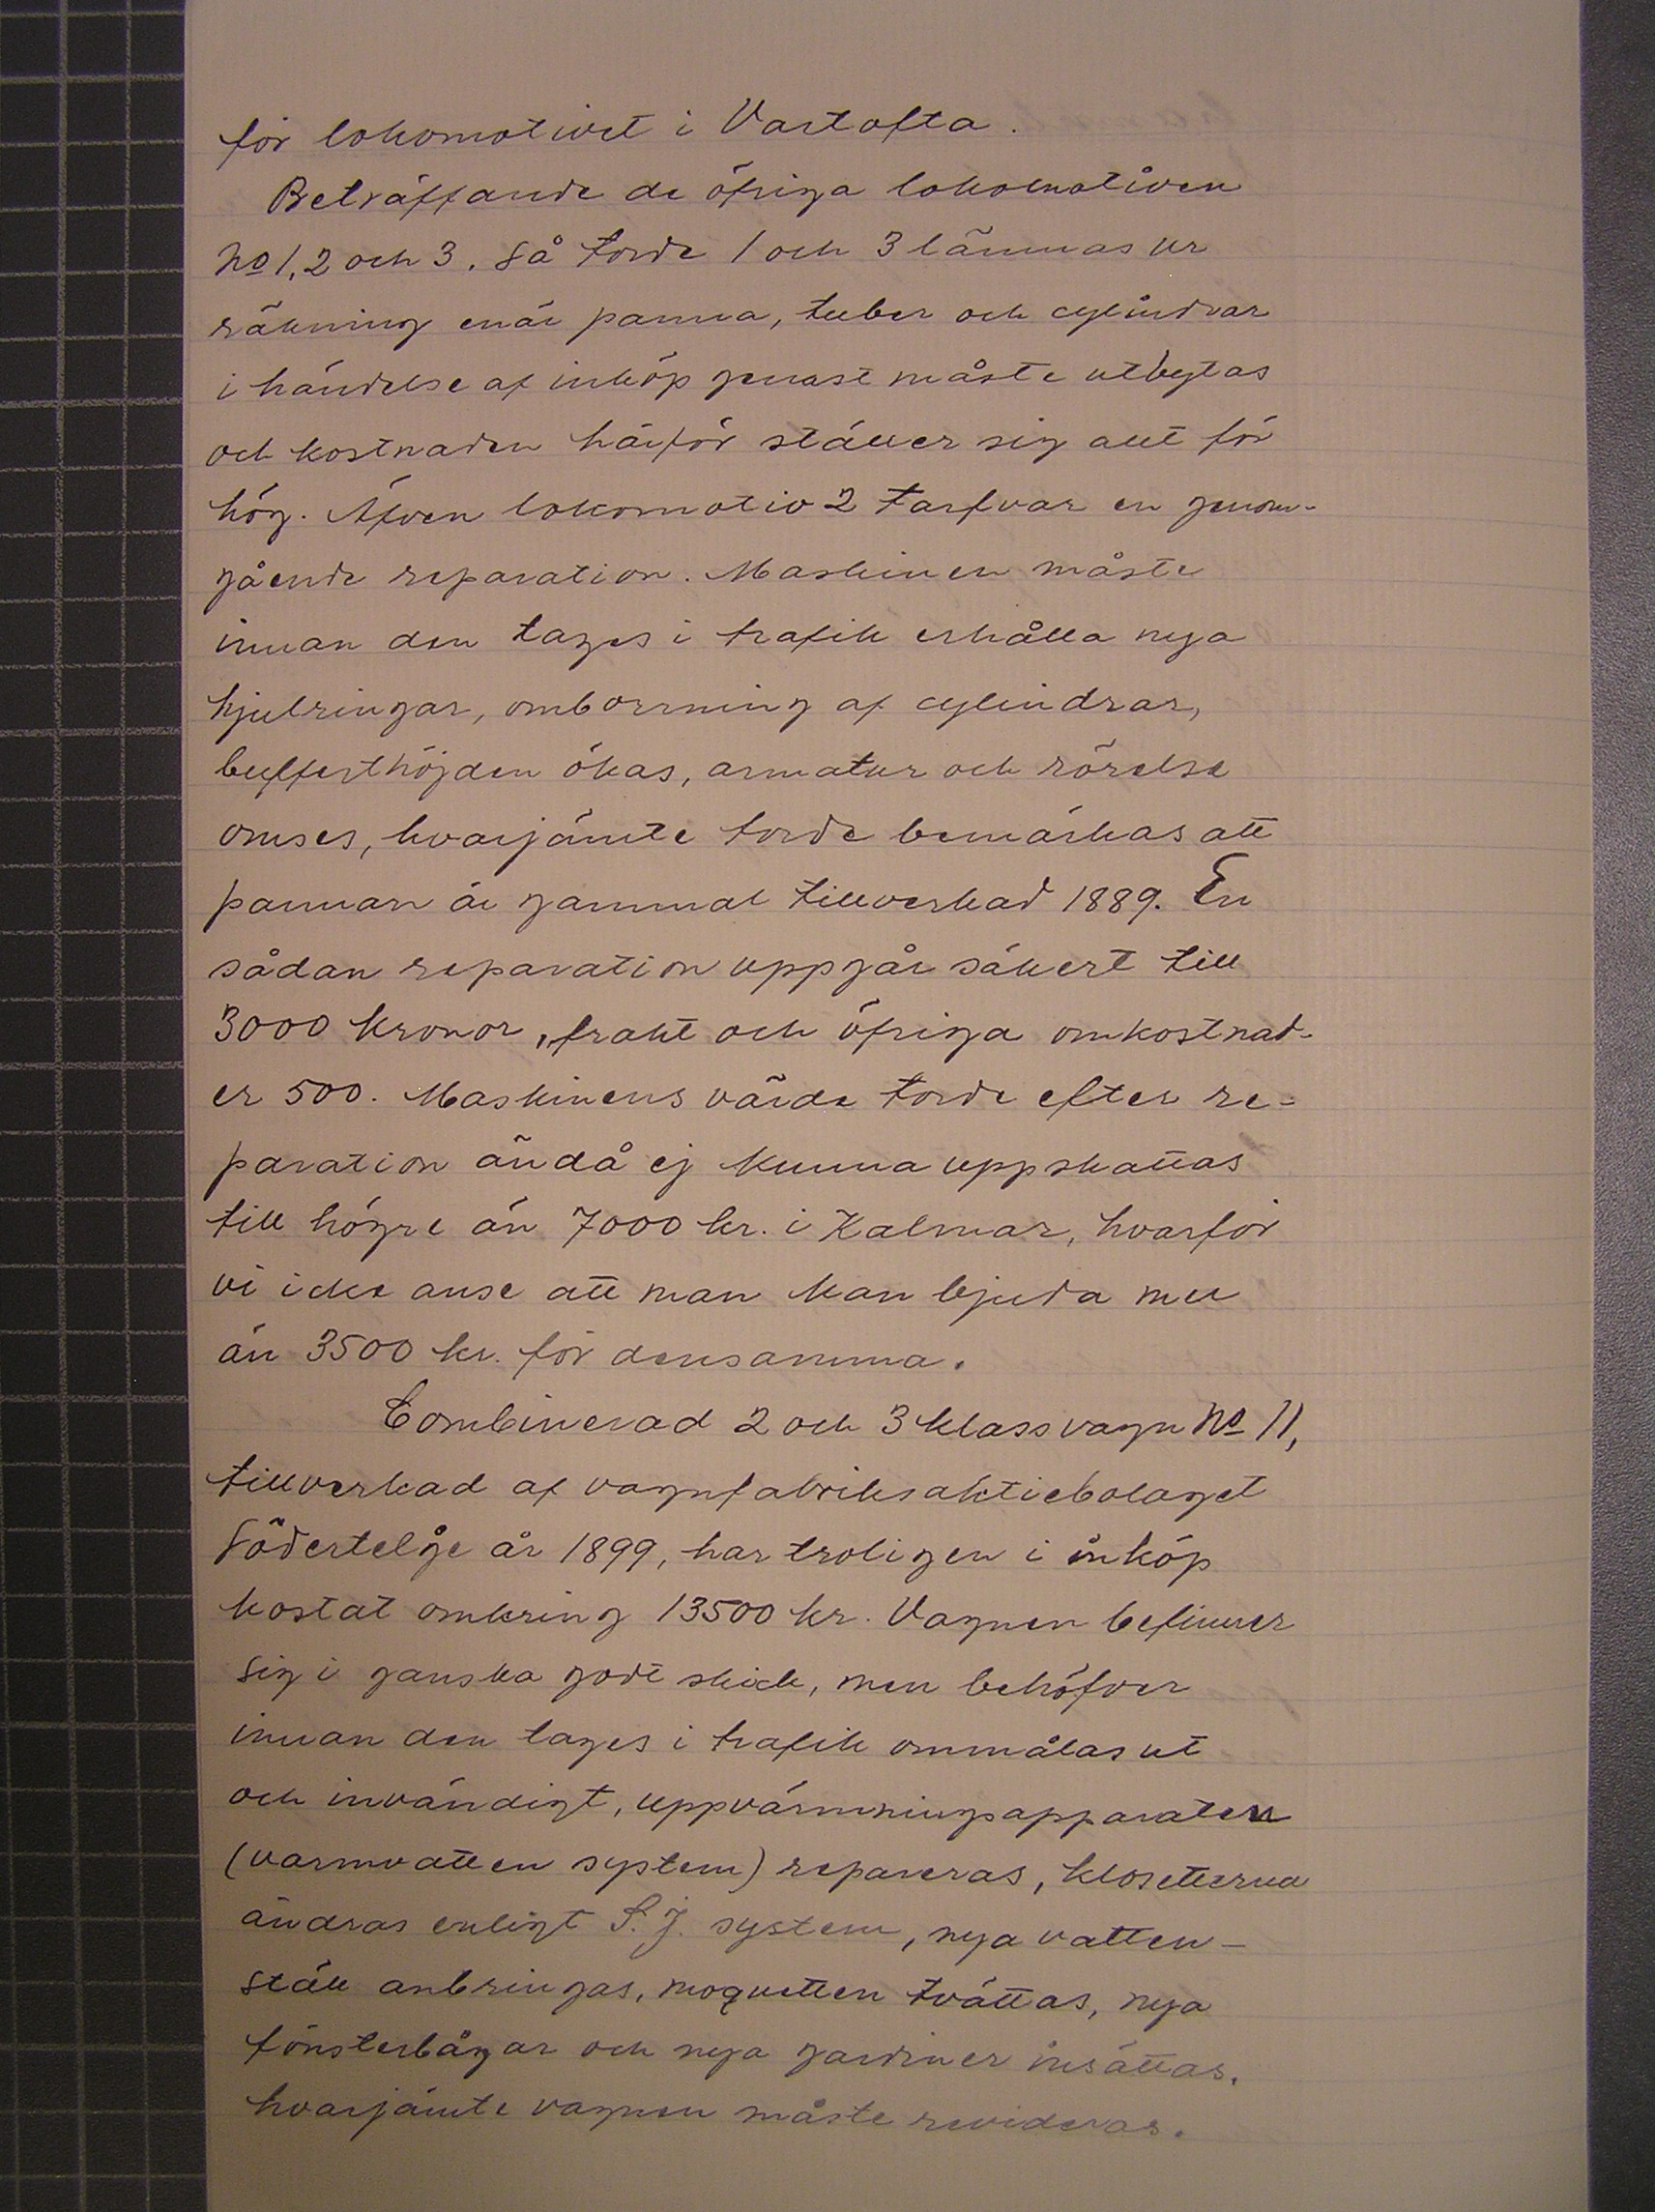 för lokomotivet i Vartofta.
Beträffande de öfriga lokomotiven
No 1, 2 och 3. Så torde 1 och 3 lämnas ur
räkning enär panna, tuber och cylindrar
i händelse af inköp genast måste utbytas
och kostnaden härför ställer sig allt för
hög. Äfven lokomotiv 2 tarfvar en genom-
gående reparation. Maskinen måste
innan den tages i trafik erhålla nya
hjulringar, omborrning af cylindrar,
bufferthöjden ökas, armatur och rörelse
omses, hvarjämte torde bemärkas att
pannan är gammal tillverkad 1889. En
sådan reparation uppgår säkert till
3000 kronor, frakt och öfriga omkostnad-
er 500. Maskinens värde torde efter re-
paration ändå ej kunna uppskattas
till högre än 7000 kr. i Kalmar, hvarför
vi icke anse att man kan bjuda mer
än 3500 kr. för densamma.
Combinerad 2 och 3 klass vagn No 11,
tillverkad af vagnfabriksaktiebolaget
Södertelge år 1899, har troligen i inköp
kostat omkring 13500 kr. Vagnen befinner
sig i ganska godt skick, men behöfver
innan den tages i trafik ommålas ut
och invändigt, uppvärmningsapparaten
(varmvatten system) repareras, klosetterna
ändras enligt S.J. system, nya vatten-
ställ anbringas, moquetten tvättas, nya
fönsterbågar och nya gardiner insättas.
hvarjämte vagnen måste revideras.